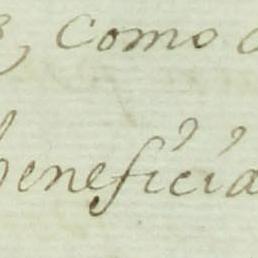 , como
beneficia